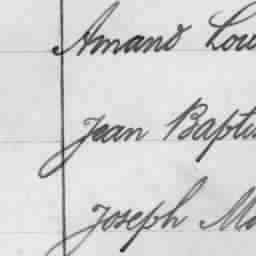 Amand Lou
Jean Baptis
Joseph Ma